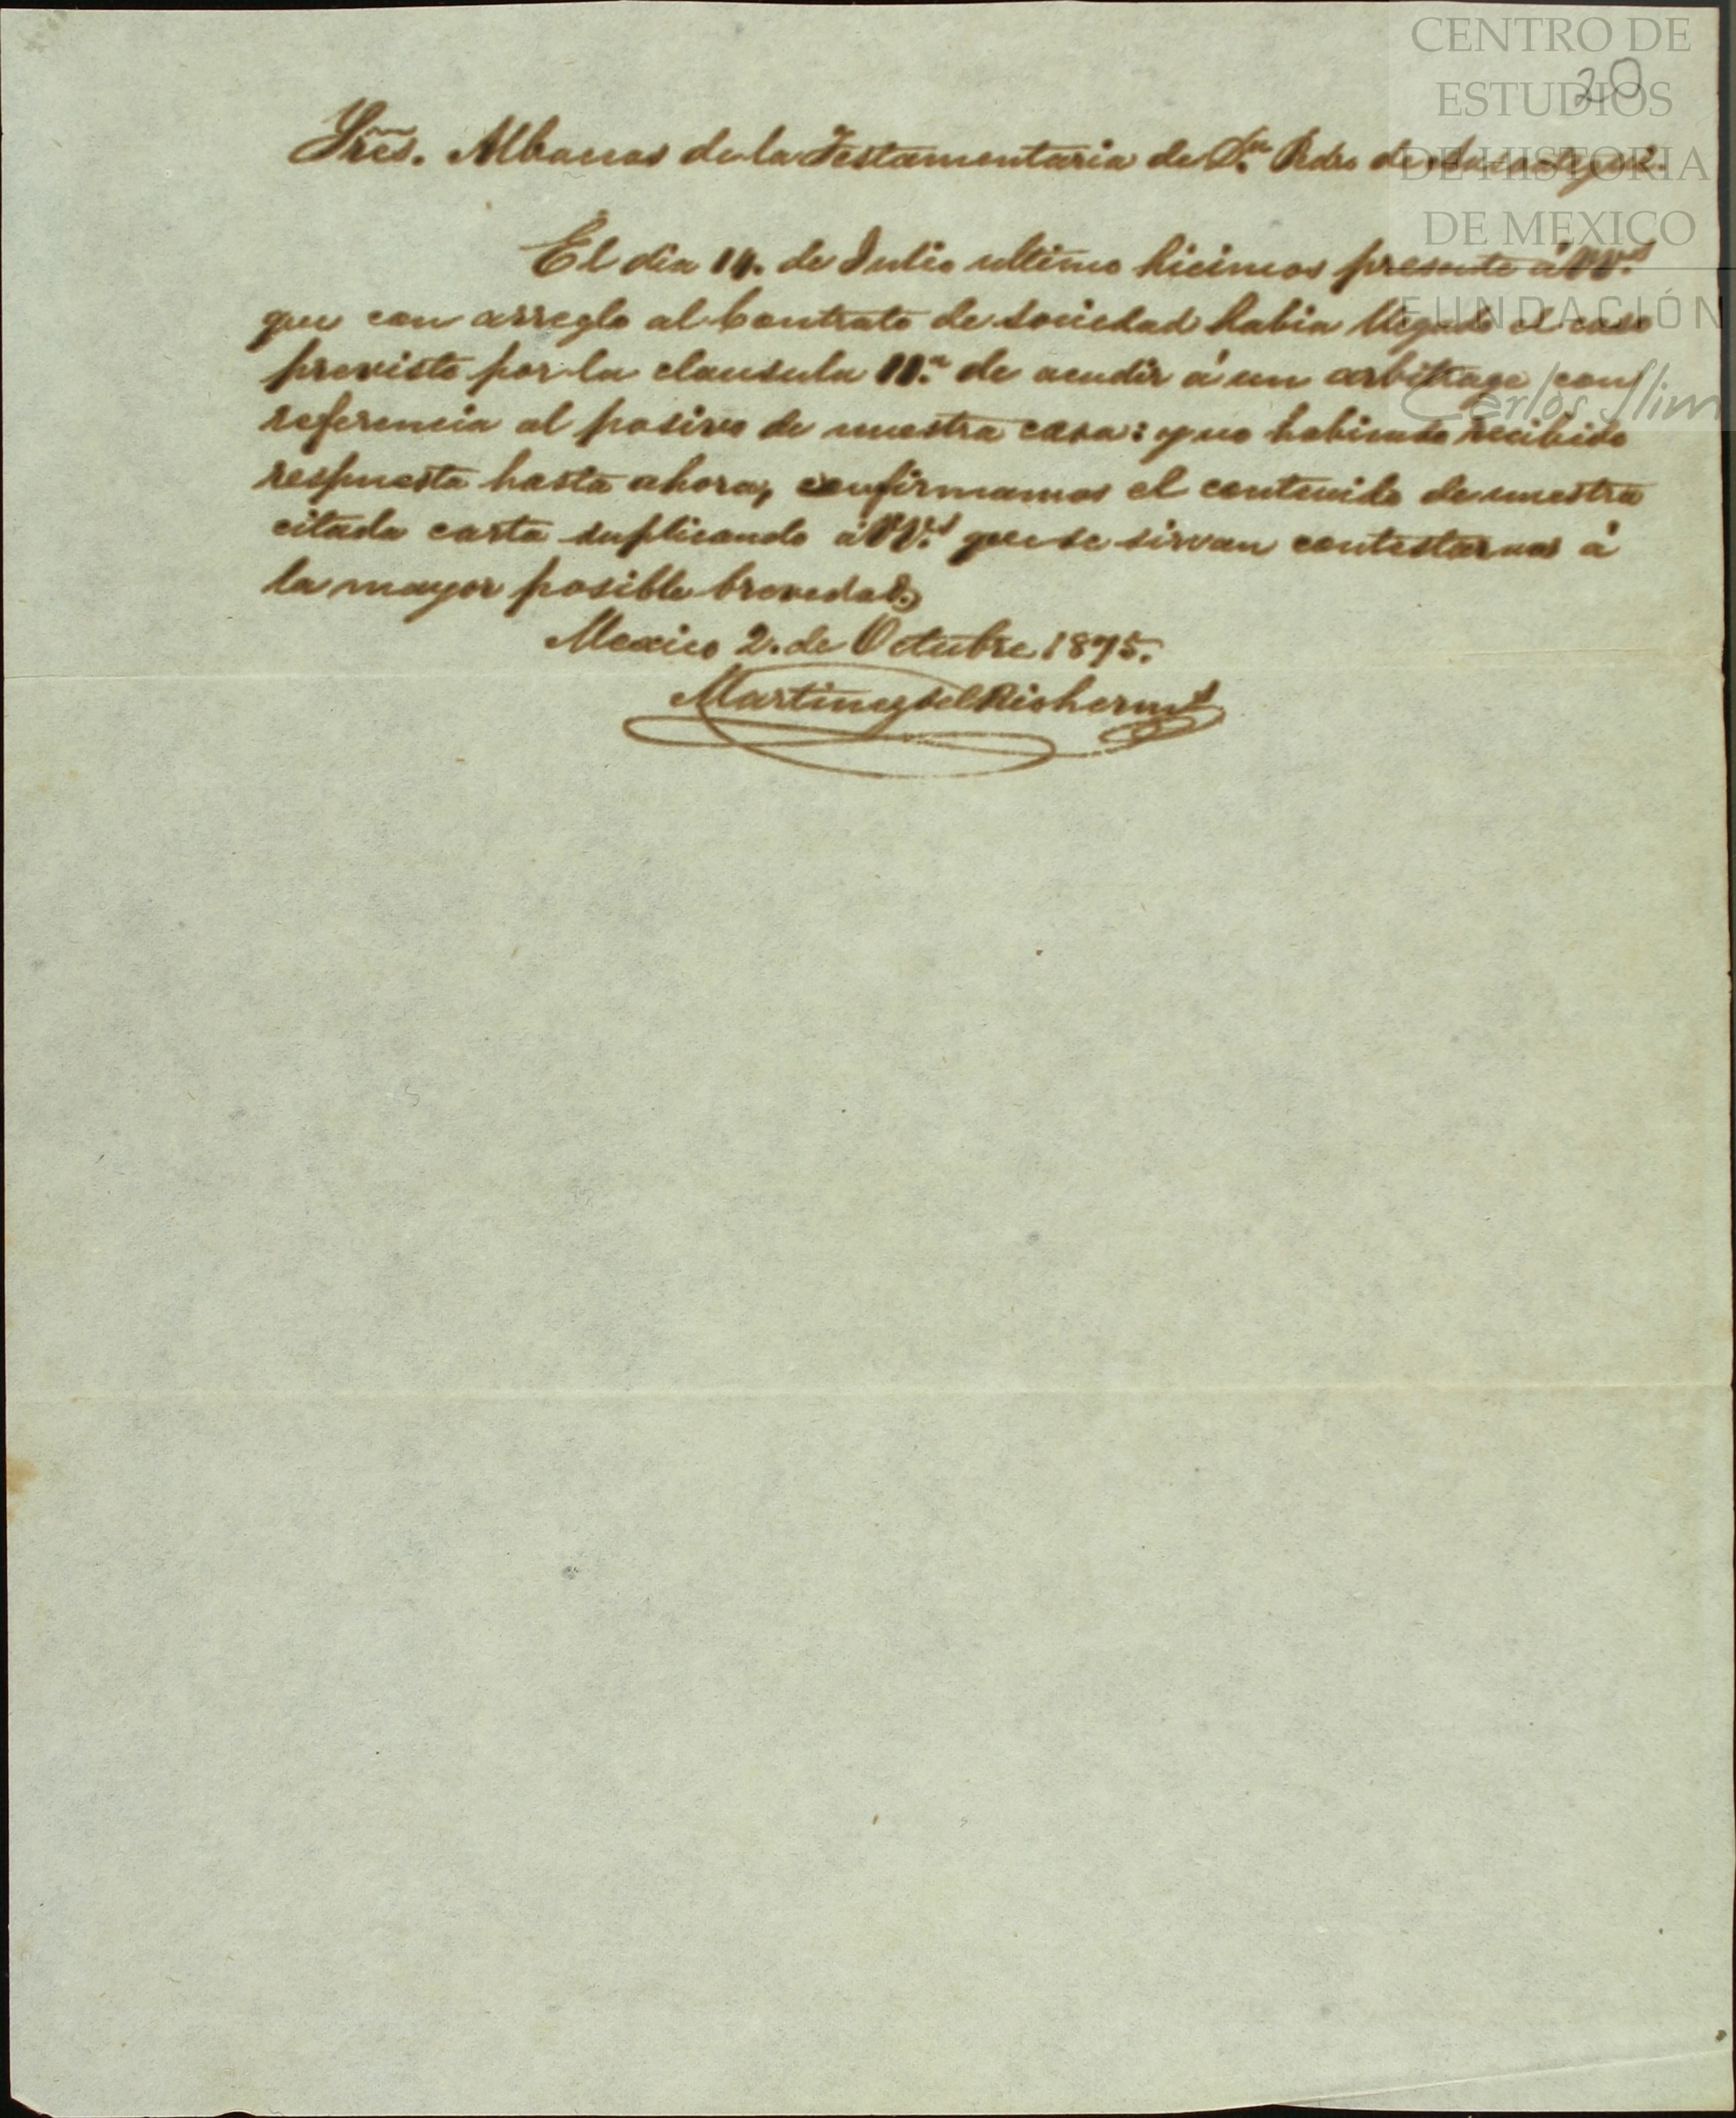 CENTRO DE
ESTUDIOS
DE HISTORIA
DE MEXICO
FUNDACIÓN
Carlos Slim
20
Sres. Albaceas de la Testamentaria de Dn. Pedro de
El dia 14. de Julio ultimo hicimos presente á VV.s
que con arreglo al Contrato de Sociedad habia llegado el caso
previsto por la clausula 11.a de acudir á un arbitrage con
referencia al pasivo de nuestra casa: y no habiendo recibido
respuesta hasta ahora, confirmamos el contenido de nuestra
citada carta suplicando á VV.s que se sirvan contestarnos á
la mayor posible brevedad.
Mexico 2. de Octubre 1875.
Martinez del Rio herms